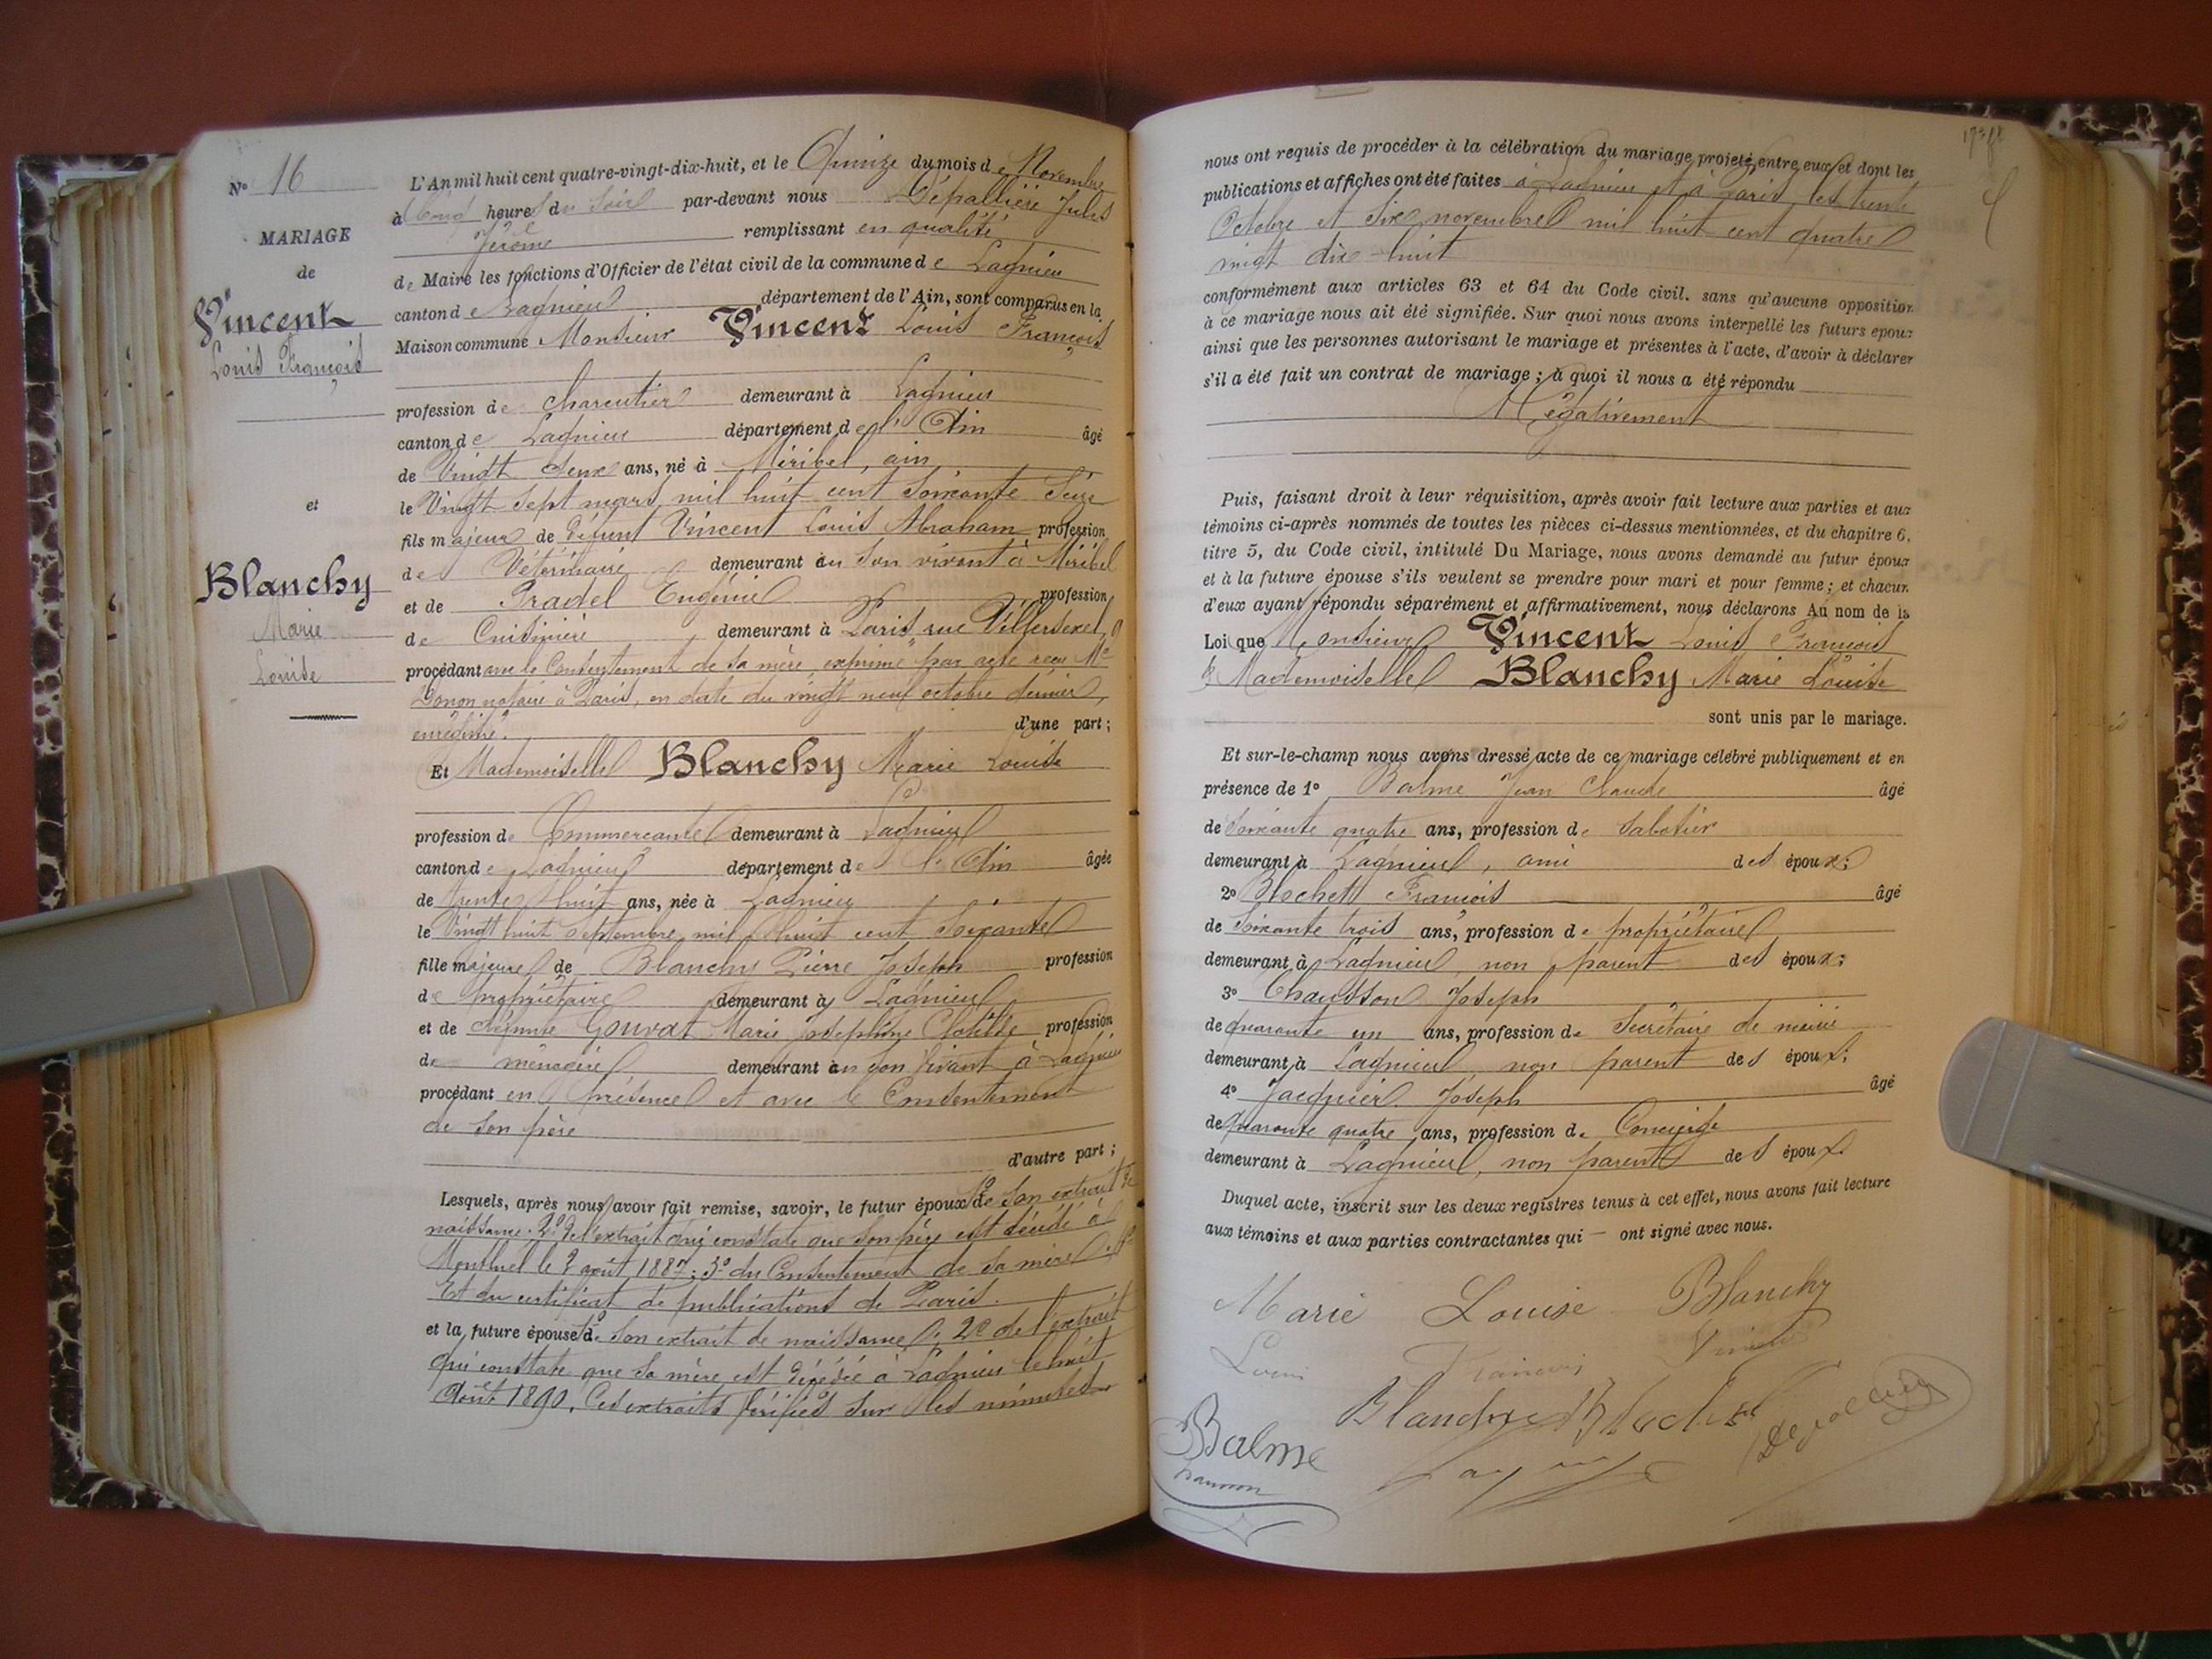 N° 16
MARIAGE
de
Vincent
Louis François
et
Blanchy
Marie
Louise
L'An mil huit cent quatre-vingt-dix-huit, et le Quinze du mois de Novembre
à Cinq heures du Soir par-devant nous Dépallière Jules
Jérôme remplissant en qualité
de Maire les fonctions d'Officier de l'état civil de la commune de Lagnieu
canton de Lagnieu département de l'Ain, sont comparus en la
Maison commune Monsieur Vincent Louis François
profession de charcutier demeurant à Lagnieu
canton de Lagnieu département de l'Ain âgé
de Vingt deux ans, né à Miribel, ain
le Vingt Sept mars mil huit cent Soixante Seize
fils majeur de Défunt Vincent Louis Abraham profession
de Vétérinaire demeurant en Son vivant à Miribel
et de Pradel Eugénie profession
de Cuisinière demeurant à Paris, rue Villersexel, 9
procédant avec le Consentement de sa mère exprimé par acte reçu Me
Donon notaire à Paris, en date du vingt neuf octobre dernier,
enregistré. d'une part;
Et Mademoiselle Blanchy Marie Louise
profession de Commercante demeurant à Lagnieu
canton de Lagnieu département de l'Ain âgée
de trente huit ans, née à Lagnieu
le Vingt huit Septembre mil huit cent Soixante
fille majeure de Blanchy Pierre Joseph profession
de propriétaire demeurant à Lagnieu
et de défunte Gouvat Marie Joséphine Clotilde profession
de ménagère demeurant en Son Vivant à Lagnieu
procédant en présence et avec le Consentement
de Son père
d'autre part;
Lesquels, après nous avoir fait remise, savoir, le futur époux 1° de Son extrait de
naissance. 2° de l'extrait qui constate que Son père est décédé à
Montluel le 2 août 1887; 3° du Consentement de Sa mère;
Et du certificat de publications de Paris.
et la future épouse 1° de Son extrait de naissance; 2° de l'extrait
qui constate que Sa mère est Décédée à Lagnieu le huit
Août 1890. Ces extraits vérifiés Sur les minutes
nous ont requis de procéder à la célébration du mariage projeté entre eux et dont les
publications et affiches ont été faites à Lagnieu et à Paris, les trente
Octobre et Six novembre mil huit cent quatre
vingt dix-huit
conformément aux articles 63 et 64 du Code civil. sans qu'aucune opposition
à ce mariage nous ait été signifiée. Sur quoi nous avons interpellé les futurs époux
ainsi que les personnes autorisant le mariage et présentes à l'acte, d'avoir à déclarer
s'il a été fait un contrat de mariage; à quoi il nous a été répondu
Négativement
Puis, faisant droit à leur réquisition, après avoir fait lecture aux parties et aux
témoins ci-après nommés de toutes les pièces ci-dessus mentionnées, et du chapitre 6,
titre 5, du Code civil, intitulé Du Mariage, nous avons demandé au futur époux
et à la future épouse s'ils veulent se prendre pour mari et pour femme; et chacun
d'eux ayant répondu séparément et affirmativement, nous déclarons Au nom de la
Loi que Monsieur Vincent Louis François
& Mademoiselle Blanchy Marie Louise
sont unis par le mariage.
Et sur-le-champ nous avons dressé acte de ce mariage célébré publiquement et en
présence de 1° Balme Jean Claude âgé
de Soixante quatre ans, profession de Sabotier
demeurant à Lagnieu, ami des époux;
2° Blochet François âgé
de Soixante trois ans, profession de propriétaire
demeurant à Lagnieu, non parent des époux;
3° Chausson Joseph
de quarante un ans, profession de Secrétaire de mairie
demeurant à Lagnieu, non parent des époux;
4° Jacquier Joseph âgé
de quarante quatre ans, profession de Concierge
demeurant à Lagnieu, non parent des époux.
Duquel acte, inscrit sur les deux registres tenus à cet effet, nous avons fait lecture
aux témoins et aux parties contractantes qui — ont signé avec nous.
Marie Louise Blanchy
Louis François Vincent
Blanchy Blochet
Balme